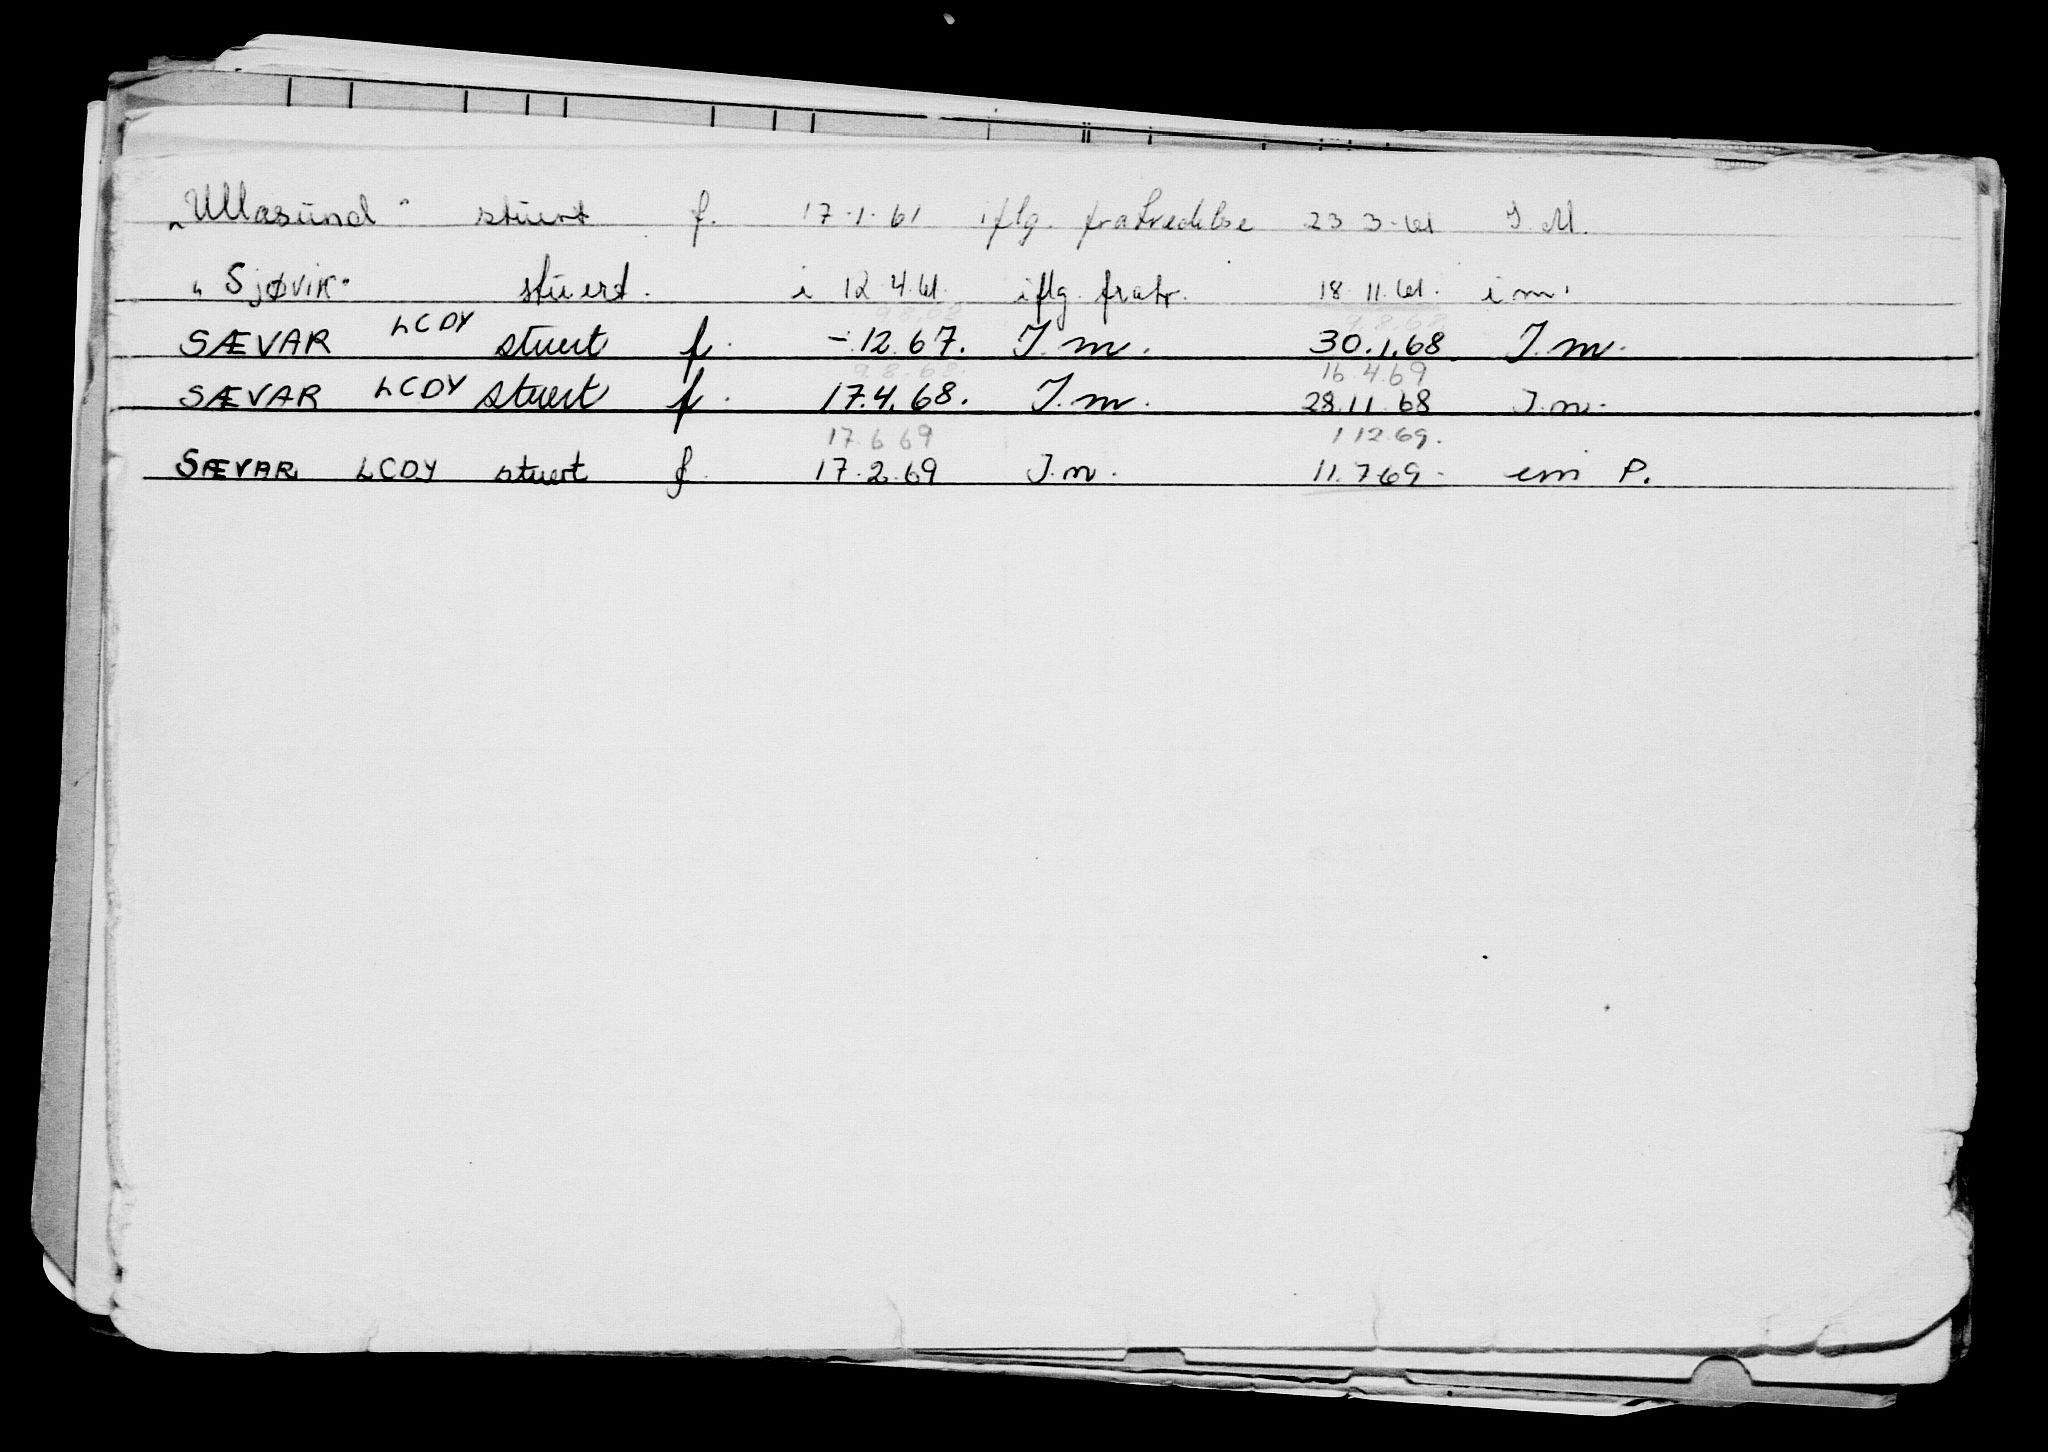 „Ullasund" stuert f. 17.1.61 iflg. fratredelse 23.3.61 I.M.
„Sjøvik" stuert. i 12.4.61. iflg. fratr. 18.11.61. i m.
9.8.68 9.8.68
SÆVAR LCDY stuert f. -.12.67. I.m. 30.1.68. I.m.
9.8.68. 16.4.69
SÆVAR LCDY stuert f. 17.4.68. I.m. 28.11.68 I.m.
17.6.69 1.12.69.
SÆVAR LCDY stuert f. 17.2.69 I.m. 11.7.69. em P.